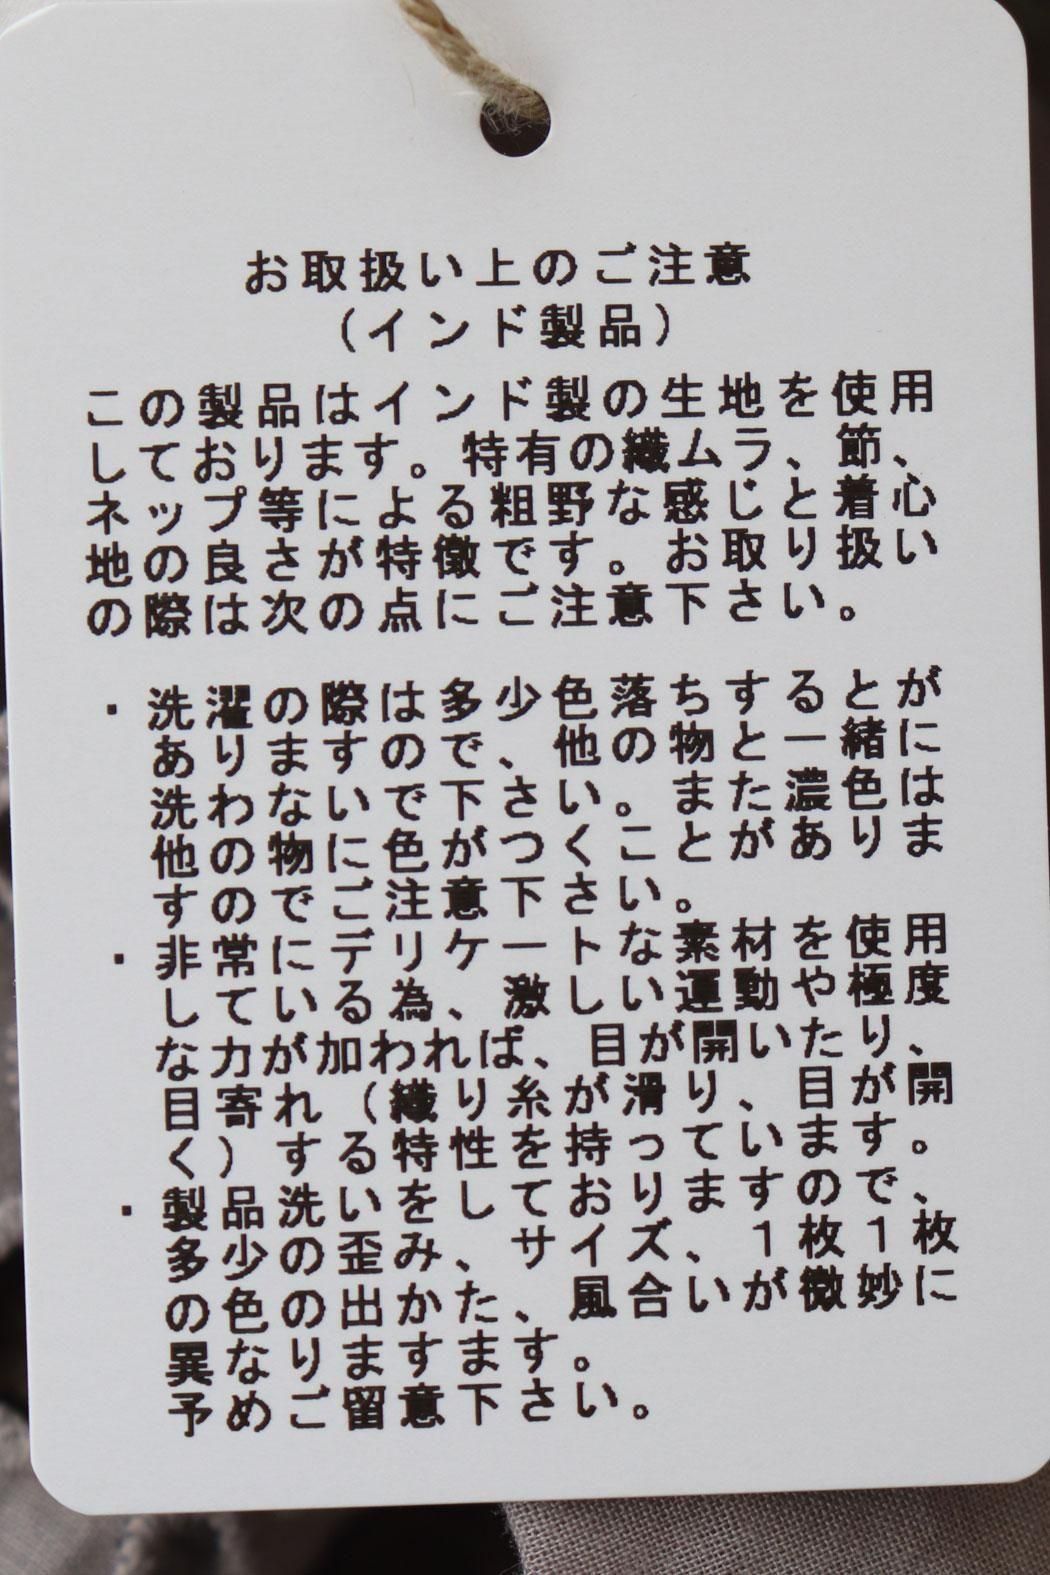 お取扱い上のご注意
（インド製品）
この製品はインド製の生地を使用
しております。特有の織ムラ、節、
ネップ等による粗野な感じと着心
地の良さが特徴です。お取り扱い
の際は次の点にご注意下さい。
・洗濯の際は多少色落ちすると が
ありますので、他の物と一緒に
洗わないで下さい。また濃色は
他の物に色がつくことがありま
すのでご注意下さい。
・非常にデリケートな素材を使用
している為、激しい運動や極度
な力が加われば、目が開いたり、
目寄れ（織り糸が滑り、目が開
く）する特性を持っています。
・製品洗いをしておりますので、
多少の歪み、サイズ、１枚１枚
の色の出かた、風合いが微妙に
異なりますます。
予めご留意下さい。